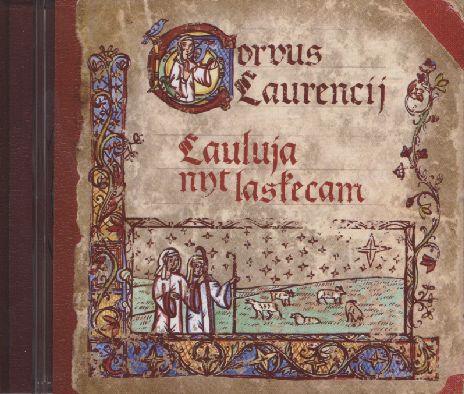 Corvus
Laurencij
Lauluja
nyt laskecam